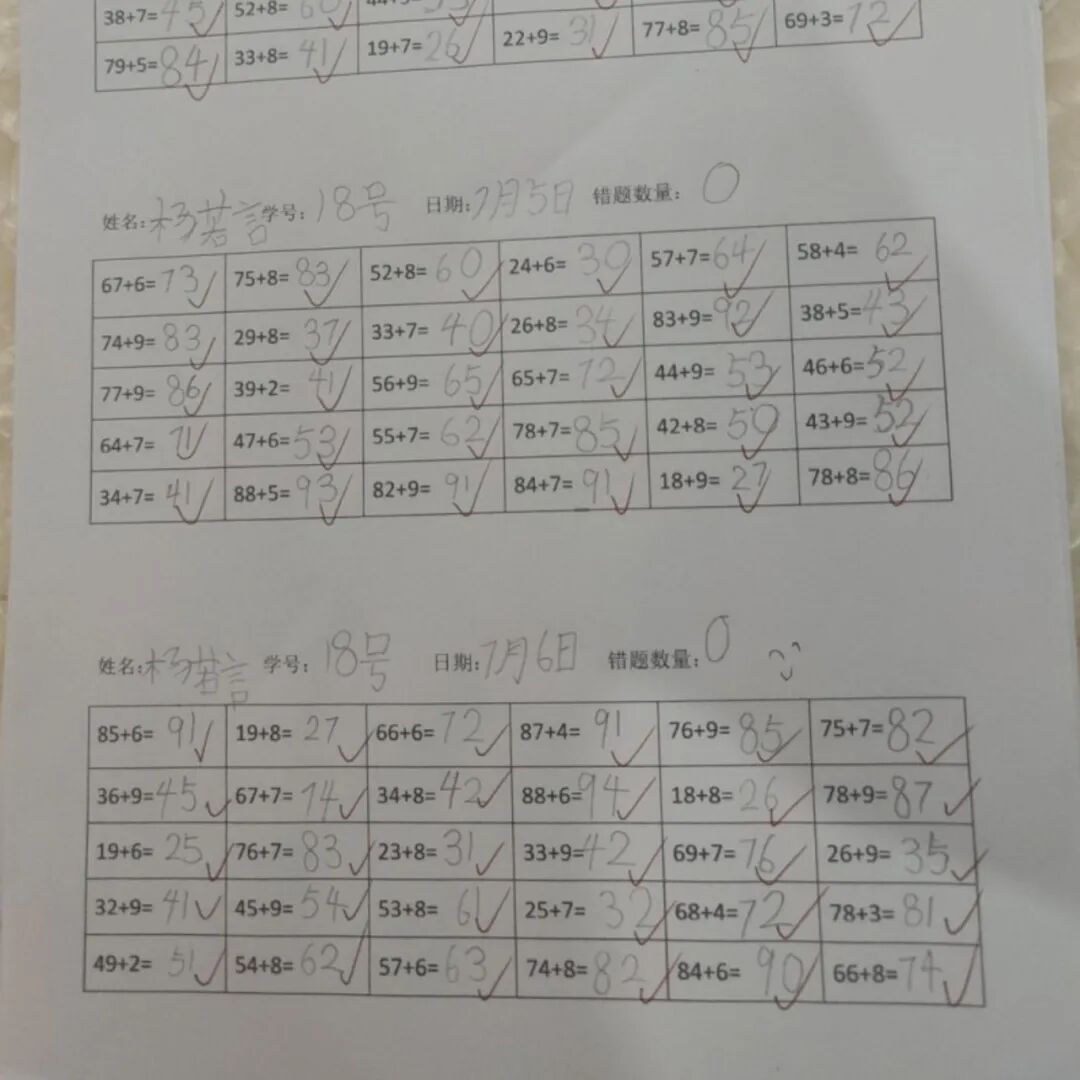 38+7=45 52+8=60
79+5=84 33+8=41 19+7=26 22+9=31 77+8=85 69+3=72
姓名:杨若言 学号:18号 日期:7月5日 错题数量:0
67+6=73 75+8=83 52+8=60 24+6=30 57+7=64 58+4=62
74+9=83 29+8=37 33+7=40 26+8=34 83+9=92 38+5=43
77+9=86 39+2=41 56+9=65 65+7=72 44+9=53 46+6=52
64+7=71 47+6=53 55+7=62 78+7=85 42+8=50 43+9=52
34+7=41 88+5=93 82+9=91 84+7=91 18+9=27 78+8=86
姓名:杨若言 学号:18号 日期:7月6日 错题数量:0
85+6=91 19+8=27 66+6=72 87+4=91 76+9=85 75+7=82
36+9=45 67+7=74 34+8=42 88+6=94 18+8=26 78+9=87
19+6=25 76+7=83 23+8=31 33+9=42 69+7=76 26+9=35
32+9=41 45+9=54 53+8=61 25+7=32 68+4=72 78+3=81
49+2=51 54+8=62 57+6=63 74+8=82 84+6=90 66+8=74